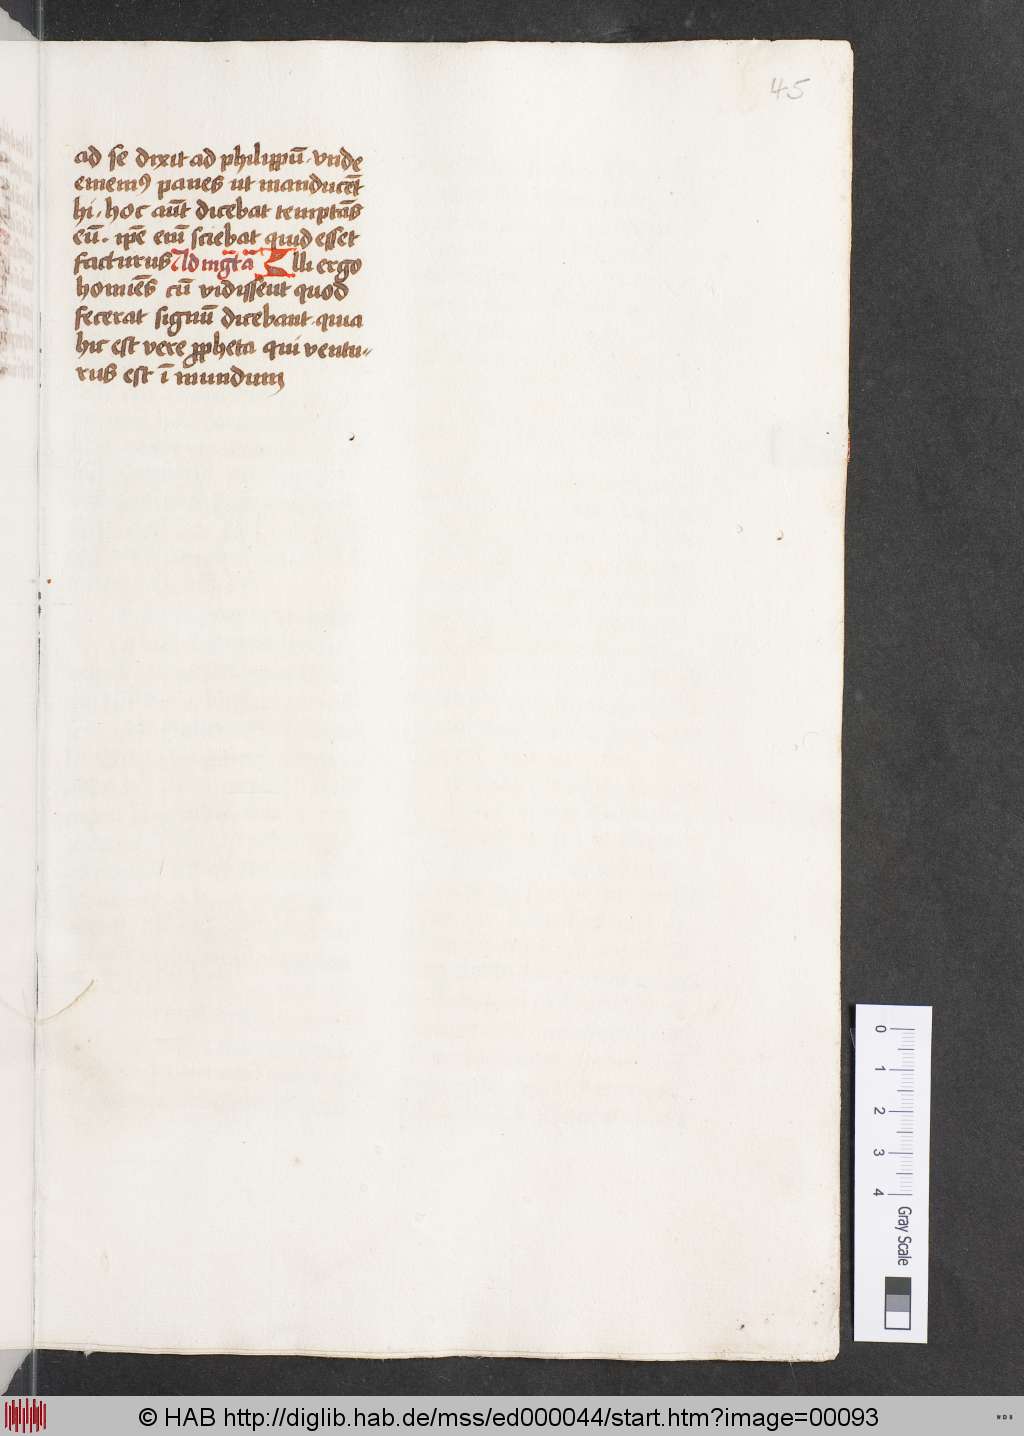 45
ad se dixit ad philippū · vnde
ememꝰ panes ut manducēt
hi · hoc aūt dicebat temptās
eū · ip̄e em̄ sciebat quid esset
facturus Ad mg̃tã Illi ergo
homīes cū vidissent quod
fecerat signū dicebant · quia
hic est vere ꝓpheta qui ventu⸗
rus est ī mundum
0
1
2
3
4
Gray Scale
© HAB http://diglib.hab.de/mss/ed000044/start.htm?image=00093